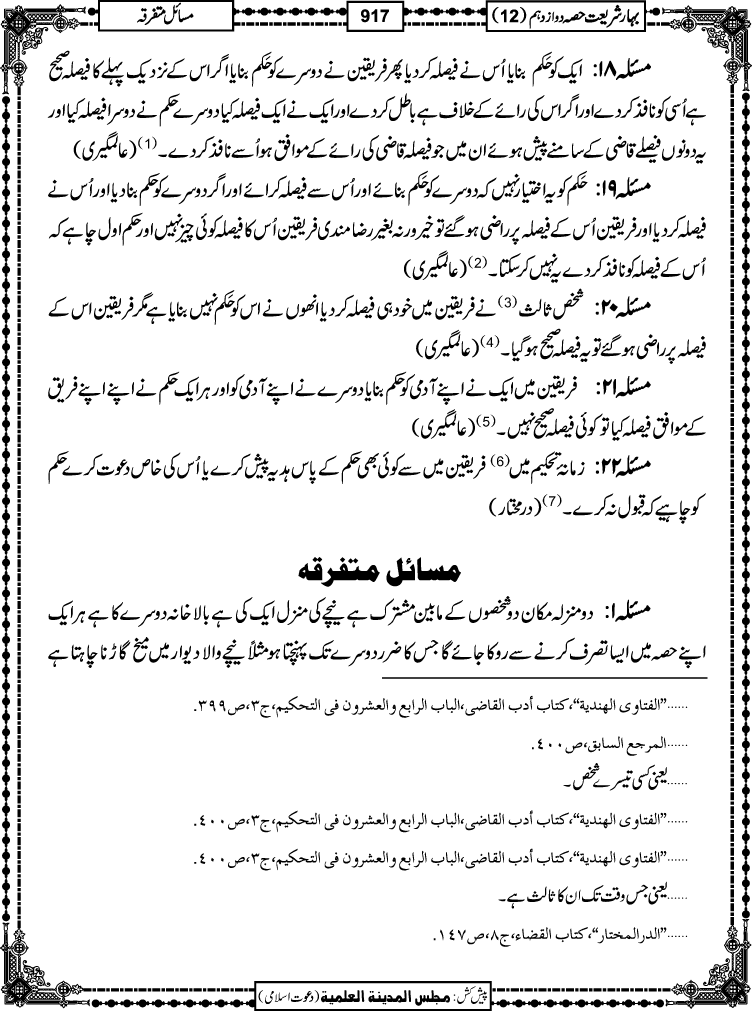 بہارِ شریعت حصہ دوازدہم (12)
917
مسائل متفرقہ
مسئلہ ۱۸: ایک کو حَکَم بنایا اُس نے فیصلہ کردیا پھر فریقین نے دوسرے کو حَکَم بنایا اگر اس کے نزدیک پہلے کا فیصلہ صحیح
ہے اُسی کو نافذ کردے اور اگر اس کی رائے کے خلاف ہے باطل کردے اور ایک نے ایک فیصلہ کیا دوسرے حکم نے دوسرا فیصلہ کیا اور
یہ دونوں فیصلے قاضی کے سامنے پیش ہوئے ان میں جو فیصلہ قاضی کی رائے کے موافق ہو اُسے نافذ کردے۔(1) (عالمگیری)
مسئلہ ۱۹: حَکَم کو یہ اختیار نہیں کہ دوسرے کو حَکَم بنائے اور اُس سے فیصلہ کرائے اور اگر دوسرے کو حَکَم بنا دیا اور اُس نے
فیصلہ کردیا اور فریقین اُس کے فیصلہ پر راضی ہوگئے تو خیر ورنہ بغیر رضا مندی فریقین اُس کا فیصلہ کوئی چیز نہیں اور حکم اول چاہے کہ
اُس کے فیصلہ کو نافذ کردے یہ نہیں کرسکتا۔(2) (عالمگیری)
مسئلہ ۲۰: شخص ثالث(3) نے فریقین میں خود ہی فیصلہ کردیا انھوں نے اس کو حَکَم نہیں بنایا ہے مگر فریقین اس کے
فیصلہ پر راضی ہوگئے تو یہ فیصلہ صحیح ہوگیا۔(4) (عالمگیری)
مسئلہ ۲۱: فریقین میں ایک نے اپنے آدمی کو حَکَم بنایا دوسرے نے اپنے آدمی کو اور ہر ایک حکم نے اپنے اپنے فریق
کے موافق فیصلہ کیا تو کوئی فیصلہ صحیح نہیں۔(5) (عالمگیری)
مسئلہ ۲۲: زمانۂ تحکیم میں(6) فریقین میں سے کوئی بھی حکم کے پاس ہدیہ پیش کرے یا اُس کی خاص دعوت کرے حکم
کو چاہیے کہ قبول نہ کرے۔(7) (درمختار)
مسائل متفرقہ
مسئلہ ۱: دو منزلہ مکان دو شخصوں کے مابین مشترک ہے نیچے کی منزل ایک کی ہے بالا خانہ دوسرے کا ہے ہر ایک
اپنے حصہ میں ایسا تصرف کرنے سے روکا جائے گا جس کا ضرر دوسرے تک پہنچتا ہو مثلاً نیچے والا دیوار میں میخ گاڑنا چاہتا ہے
......”الفتاوی الھندیة“، کتاب أدب القاضی، الباب الرابع والعشرون فی التحکیم، ج۳، ص۳۹۹.
......المرجع السابق، ص۴۰۰.
......یعنی کسی تیسرے شخص۔
......”الفتاوی الھندیة“، کتاب أدب القاضی، الباب الرابع والعشرون فی التحکیم، ج۳، ص۴۰۰.
......”الفتاوی الھندیة“، کتاب أدب القاضی، الباب الرابع والعشرون فی التحکیم، ج۳، ص۴۰۰.
......یعنی جس وقت تک ان کا ثالث ہے۔
......”الدرالمختار“، کتاب القضاء، ج۸، ص۱۴۷.
پیش کش: مجلس المدینة العلمیة (دعوت اسلامی)